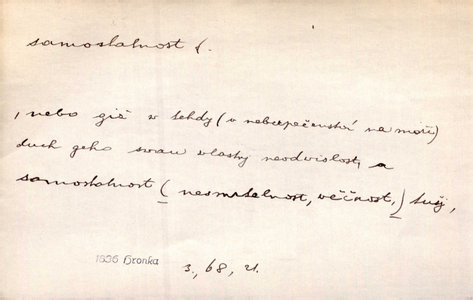 samostatnost f.
, nebo giž w tehdy (v nebezpečenství na moři)
duch geho swau vlastnj neodvislost, a
samostatnost ( nesmrtelnost, věčnost, ) tuší,
1836 Hronka
3, 68, 21.